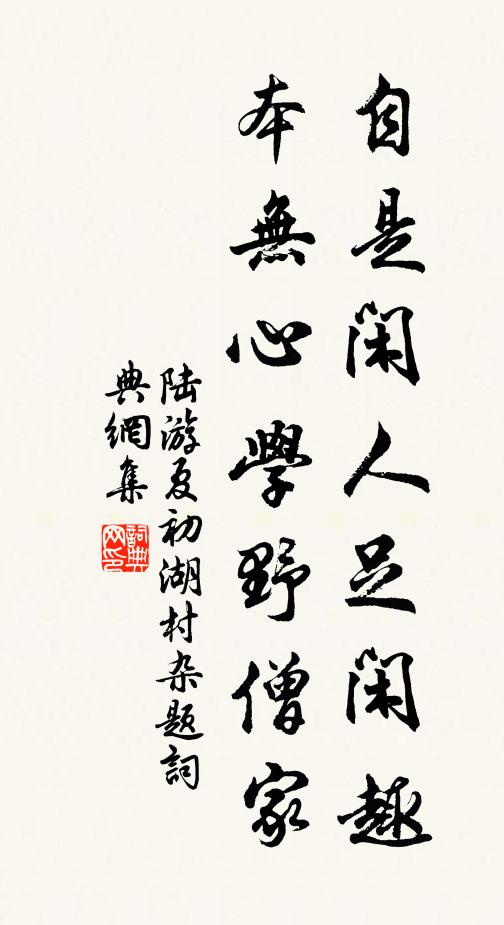 自是閑人足閑趣
本無心學野僧家
陆游夏初湖村杂题詞
典網集
詞典网印